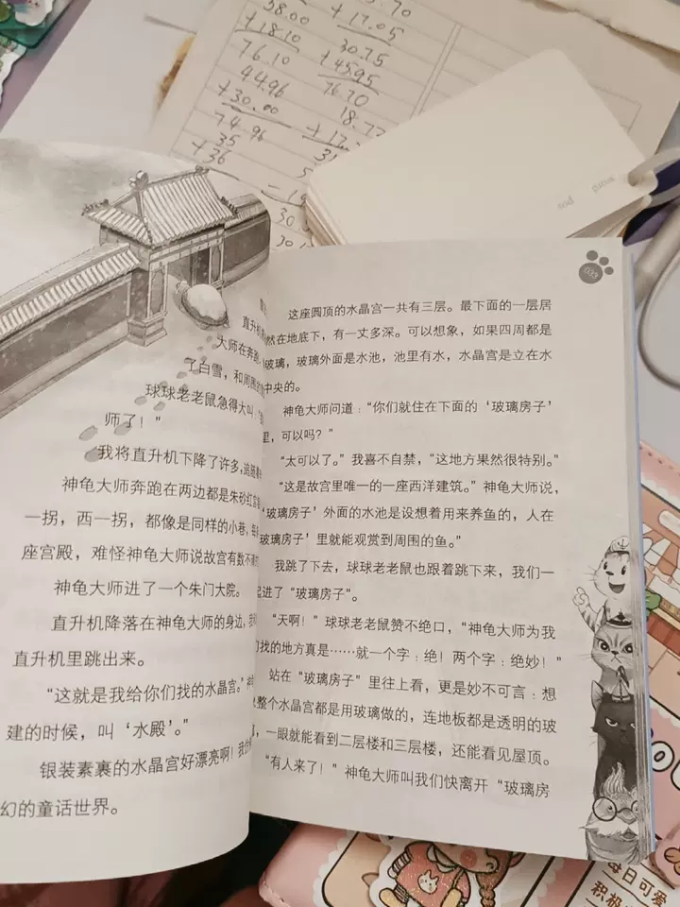 58.00
+18.10
76.10
44.96
+30.00
74.96
35
+36
.70
+17.05
30.75
+45.95
76.70
18.7
+17.
直升机
大师在奔跑
了白雪，和周
球球老老鼠急得大叫：
师了！”
我将直升机下降了许多，追随
神龟大师奔跑在两边都是朱砂红
一拐，西一拐，都像是同样的小巷，
座宫殿，难怪神龟大师说故宫有数不
神龟大师进了一个朱门大院。
直升机降落在神龟大师的身边，
直升机里跳出来。
“这就是我给你们找的水晶宫。”
建的时候，叫‘水殿’。”
银装素裹的水晶宫好漂亮啊！我
幻的童话世界。
033
这座圆顶的水晶宫一共有三层。最下面的一层居
然在地底下，有一丈多深。可以想象，如果四周都是
玻璃，玻璃外面是水池，池里有水，水晶宫是立在水
中央的。
神龟大师问道：“你们就住在下面的‘玻璃房子’
里，可以吗？”
“太可以了。”我喜不自禁，“这地方果然很特别。”
“这是故宫里唯一的一座西洋建筑。”神龟大师说，
‘玻璃房子’外面的水池是设想着用来养鱼的，人在
玻璃房子’里就能观赏到周围的鱼。”
我跳了下去，球球老老鼠也跟着跳下来，我们一
起进了“玻璃房子”。
“天啊！”球球老老鼠赞不绝口，“神龟大师为我
们找的地方真是……就一个字：绝！两个字：绝妙！”
站在“玻璃房子”里往上看，更是妙不可言：想
整个水晶宫都是用玻璃做的，连地板都是透明的玻
，一眼就能看到二层楼和三层楼，还能看见屋顶。
“有人来了！”神龟大师叫我们快离开“玻璃房
每日可爱
积极